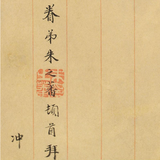 眷弟朱之蕃頓首拜
冲